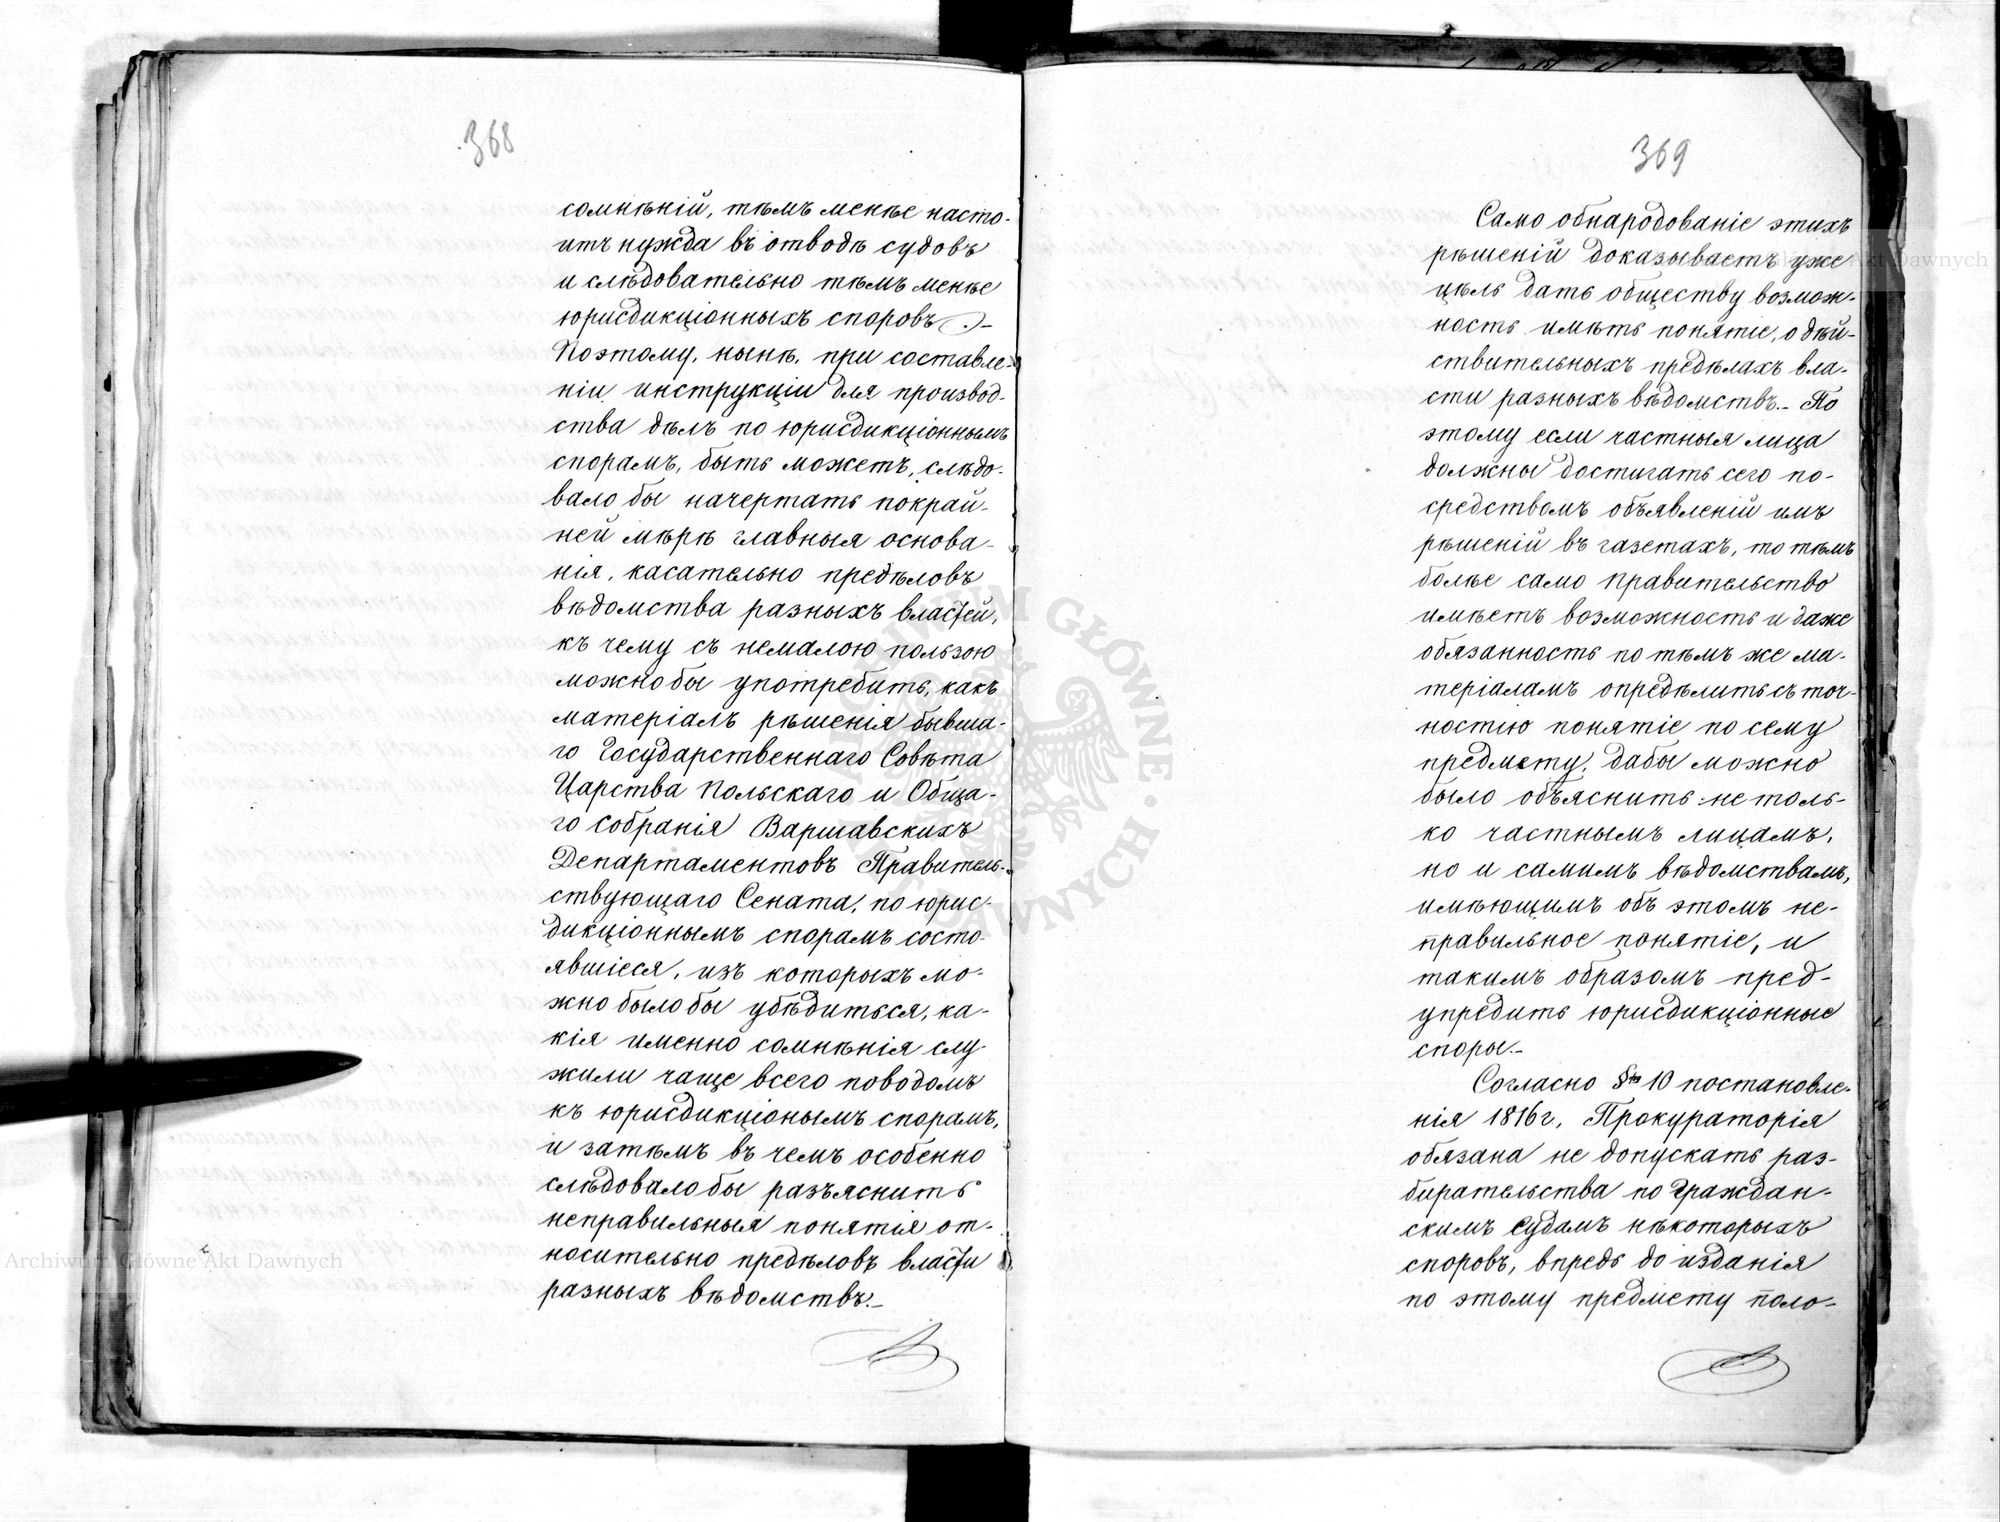 368
сомнѣній, тѣмъ менѣе насто-
итъ нужда въ отводѣ судовъ
и слѣдовательно тѣмъ менѣе
юрисдикціонныхъ споровъ
Поэтому, нынѣ, при составле-
ніи инструкціи для производ-
ства дѣлъ по юрисдикціоннымъ
спорамъ, быть можетъ, слѣдо-
вало бы начертать покрай-
ней мѣрѣ главныя основа-
нія, касательно предѣловъ
вѣдомства разныхъ властей,
къ чему съ немалою пользою
можно бы употребить, какъ
матеріалъ рѣшенія бывша-
го Государственнаго Совѣта
Царства Польскаго и Обща-
го собранія Варшавскихъ
Департаментовъ Правитель-
ствующаго Сената, по юрис-
дикціоннымъ спорамъ состо-
явшіеся, изъ которыхъ мо-
жно было бы убѣдиться, ка-
кія именно сомнѣнія слу-
жили чаще всего поводомъ
къ юрисдикціонымъ спорамъ,
и затѣмъ въ чемъ особенно
слѣдовало бы разъяснить
неправильныя понятія от-
носительно предѣловъ власти
разныхъ вѣдомствъ.-
369
Само обнародованіе этихъ
рѣшеній доказываетъ уже
цѣль дать обществу возмож-
ность имѣть понятіе, о дѣй-
ствительныхъ предѣлахъ вла-
сти разныхъ вѣдомствъ.- По
этому если частныя лица
должны достигать сего по-
средствомъ объявленій имъ
рѣшеній въ газетахъ, то тѣмъ
болѣе само правительство
имѣетъ возможность и даже
обязанность по тѣмъ же ма-
теріаламъ опредѣлить съ точ-
ностію понятіе по сему
предмету, дабы можно
было объяснить не толь-
ко частнымъ лицамъ,
но и самимъ вѣдомствамъ,
имѣющимъ объ этомъ не-
правильное понятіе, и
такимъ образомъ пред-
упредить юрисдикціонные
споры.-
Согласно § 10 постановле-
нія 1816 г., Прокураторія
обязана не допускать раз-
бирательства по Граждан-
скимъ Судамъ нѣкоторыхъ
споровъ, впредь до изданія
по этому предмету поло-
Archiwum Główne Akt Dawnych
Akt Dawnych